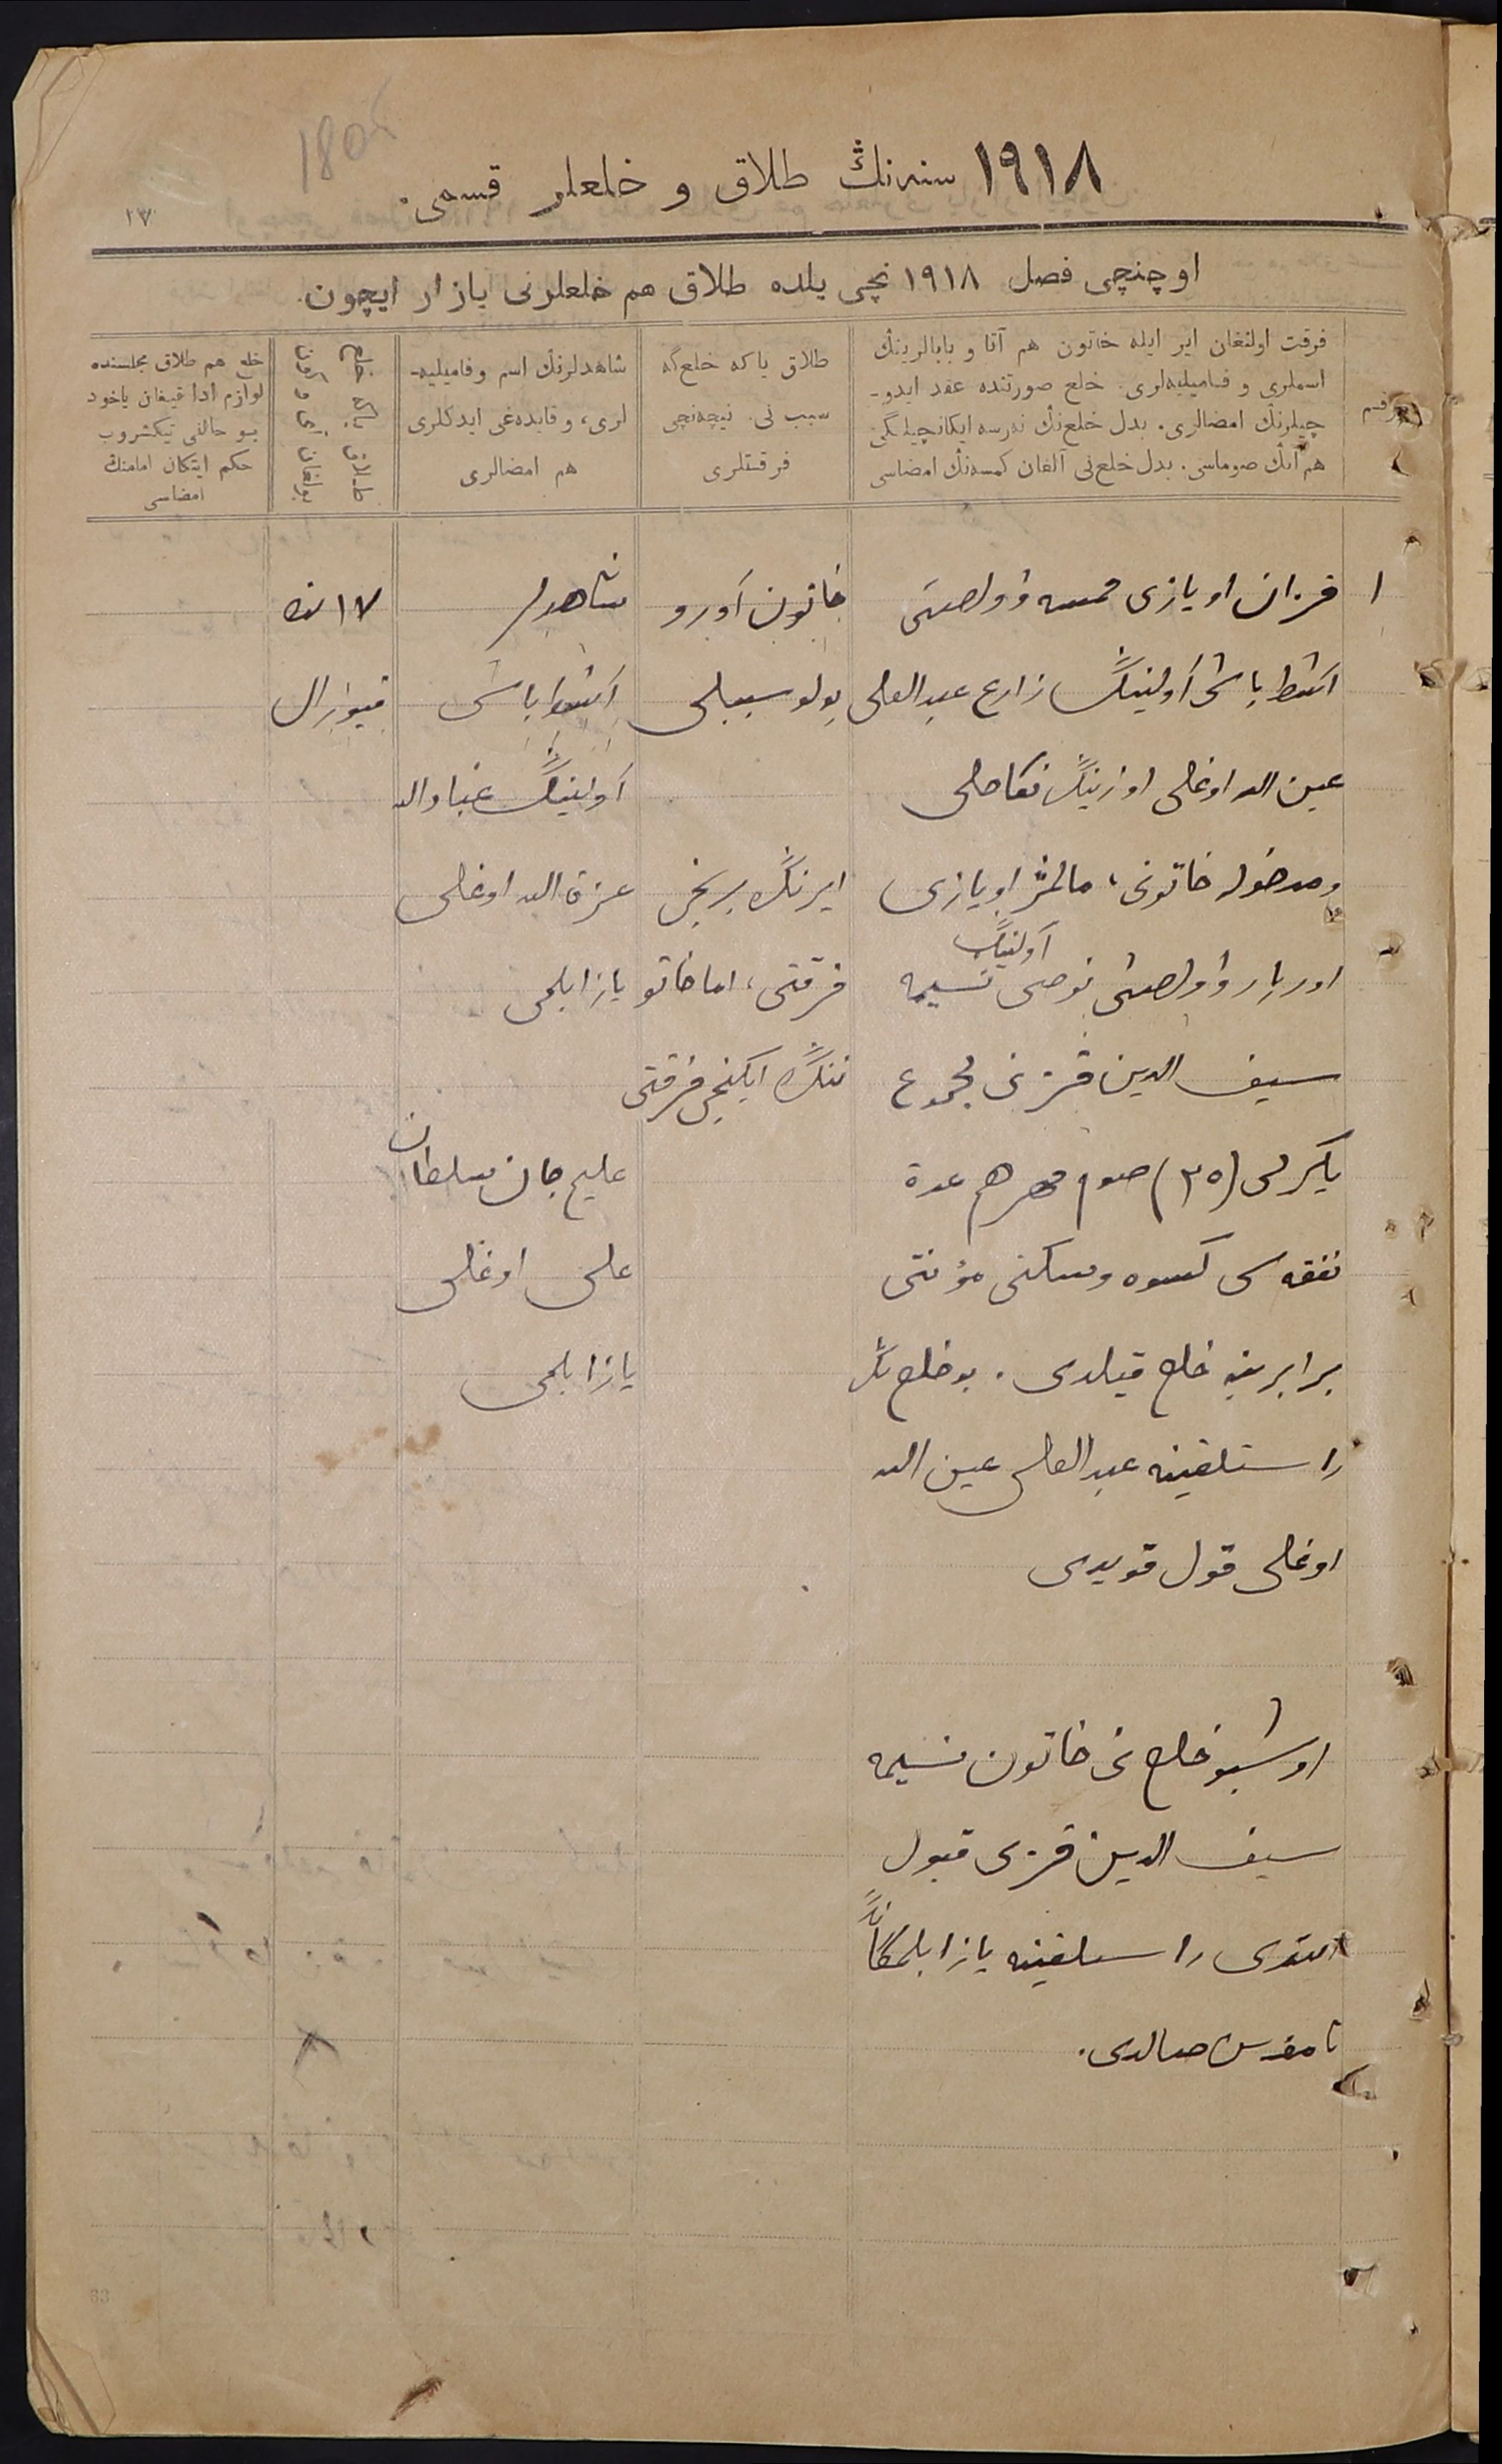 180
١٩١٨ سنه‌نڭ طلاق و خلعلر قسمی.
١٧
اوچنچی فصل ١٩١٨ نچی یلده طلاق هم خلعلرنی یازار ایچون.
رقم
فرقت اولنغان ایر ایله خاتون هم آتا و بابالرینڭ
اسملری و فامیلیه‌لری. خلع صورتنده عقد ایدو-
چیلرنڭ امضالری. بدل خلع‌نڭ نه‌رسه ایکانچیلگی
هم آنڭ صوماسی. بدل خلع‌نی آلغان کمسه‌نڭ امضاسی
طلاق یا که خلع‌گه
سبب نی. نیچه‌نچی
فرقتلری
شاهدلرنڭ اسم و فامیلیه-
لری، و قایده‌غی ایدکلری
هم امضالری
طلاق یا که خلع
بولغان آی و کون
خلع هم طلاق مجلسنده
لوازم ادا قیغان یاخود
بو حالنی تیکشروب
حکم ایتکان امامنڭ
امضاسی
١
قزان اویازی ممسه وولصتی
اشط باشی آولینڭ زارع عبدالعلی
عین الله اوغلی اوزینڭ نکاحلی
ومدخوله خاتونی، مالمژ اویازی
اوربار وولصتی نوصی آولینڭ نسیمه
سیف الدین قزنی مجموع
یکرمی (٢٥) صوم مهر هم عدة
نفقه سی کسوه وسکنی مؤنتی
برابرینه خلع قیلدی. بو خلع نڭ
راستلقینه عبدالعلی عین الله
اوغلی قول قویدی
اوشبو خلع نی خاتون نسیمه
سیف الدین قزی قبول
ایتدی راستلقینه یازا بلمگاڭ
تامغاسن صالدی.
خاتون آورو
بولو سببلی
ایرنڭ برنچی
فرقتی، اما خاتو
ننڭ ایکنچی فرقتی
شاهدلر
اشط باشی
آولینڭ عبادالله
عزة الله اوغلی
یازا بلمی
علیم جان سلطان
علی اوغلی
یازا بلمی
١٧ نده
فیورال